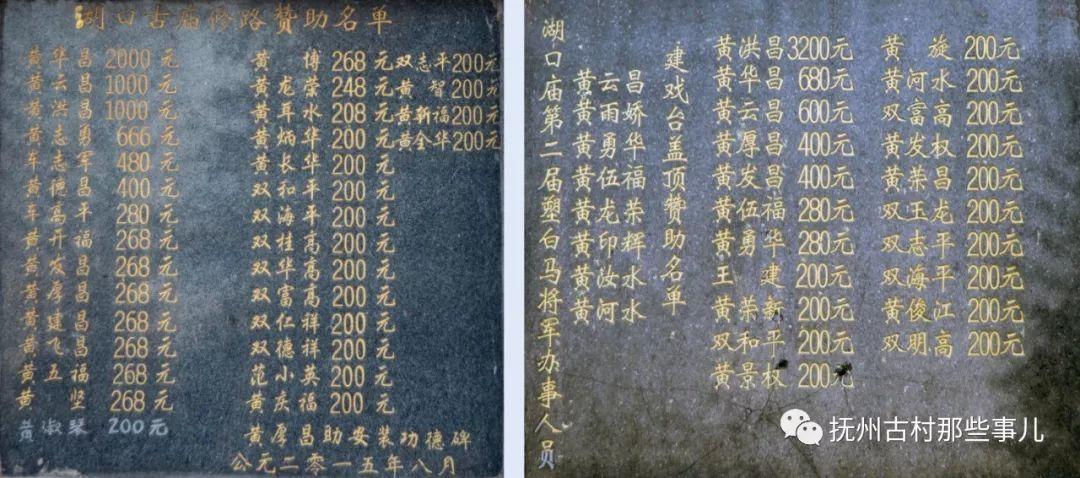 湖口古庙修路赞助名单
黄华昌 2000元
黄云昌 1000元
黄洪昌 1000元
黄志勇 666元
车志军 480元
黄德昌 400元
车高平 280元
黄开福 268元
黄发昌 268元
黄厚昌 268元
黄建昌 268元
黄飞昌 268元
黄五福 268元
黄坚 268元
黄淑琴 200元
黄博 268元
黄龙荣 248元
黄耳水 208元
黄炳华 200元
黄长华 200元
双和平 200元
双海平 200元
双桂高 200元
双华高 200元
双富高 200元
双仁祥 200元
双德祥 200元
范小英 200元
黄庆福 200元
双志平 200元
黄智 200元
黄新福 200元
黄全华 200元
黄厚昌助安装功德碑
公元二零一五年八月
湖口庙第二届塑白马将军办事人员
黄云昌
黄雨娇
黄勇华
黄伍福
黄龙荣
黄印辉
黄汝水
黄河水
建戏台盖顶赞助名单
黄洪昌 3200元
黄华昌 680元
黄云昌 600元
黄厚昌 400元
黄发昌 400元
黄伍福 280元
黄勇华 280元
王建 200元
黄荣新 200元
双和平 200元
黄景权 200元
黄旋 200元
黄河水 200元
双富高 200元
黄发权 200元
黄荣昌 200元
双玉龙 200元
双志平 200元
双海平 200元
黄俊江 200元
双明高 200元
抚州古村那些事儿